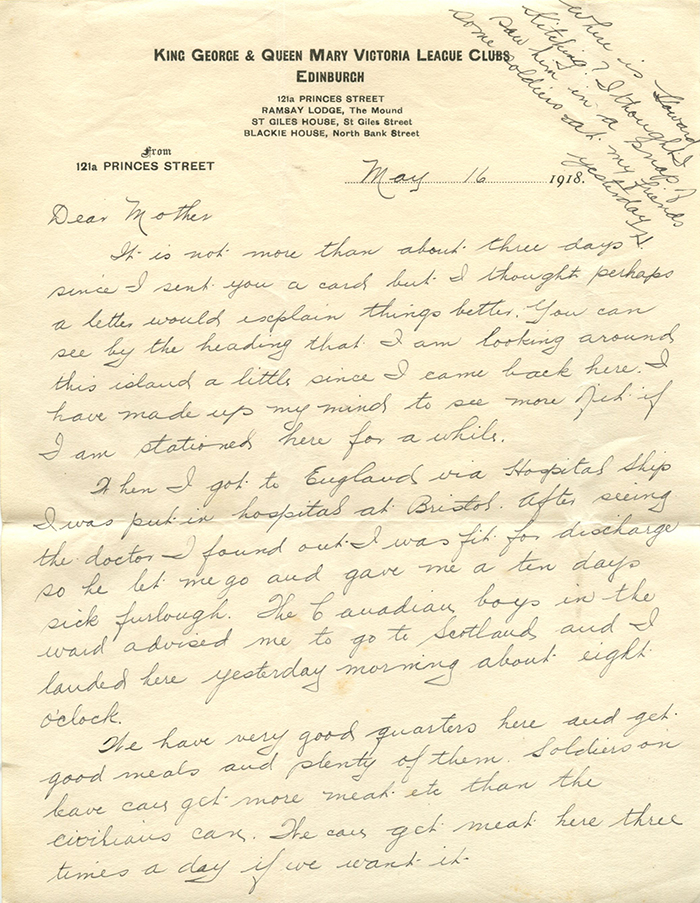 KING GEORGE & QUEEN MARY VICTORIA LEAGUE CLUBS
EDINBURGH
121a PRINCES STREET
RAMSAY LODGE, The Mound
ST GILES HOUSE, St Giles Street
BLACKIE HOUSE, North Bank Street
From
121a PRINCES STREET
May 16 1918.
Where is Howard
Kitching? I thought I
saw him in a snap of
some soldiers at my friends
yesterday H.
Dear Mother
It is not more than about three days
since I sent you a card but I thought perhaps
a letter would explain things better. You can
see by the heading that I am looking around
this island a little since I came back here. I
have made up my mind to see more of it if
I am stationed here for a while.
When I got to England via Hospital Ship
I was put in hospital at Bristol. After seeing
the doctor I found out I was fit for discharge
so he let me go and gave me a ten days
sick furlough. The Canadian boys in the
ward advised me to go to Scotland and I
landed here yesterday morning about eight
o'clock.
We have very good quarters here and get
good meals and plenty of them. Soldiers on
leave can get more meat etc than the
civilians can. The can get meat here three
times a day if we want it